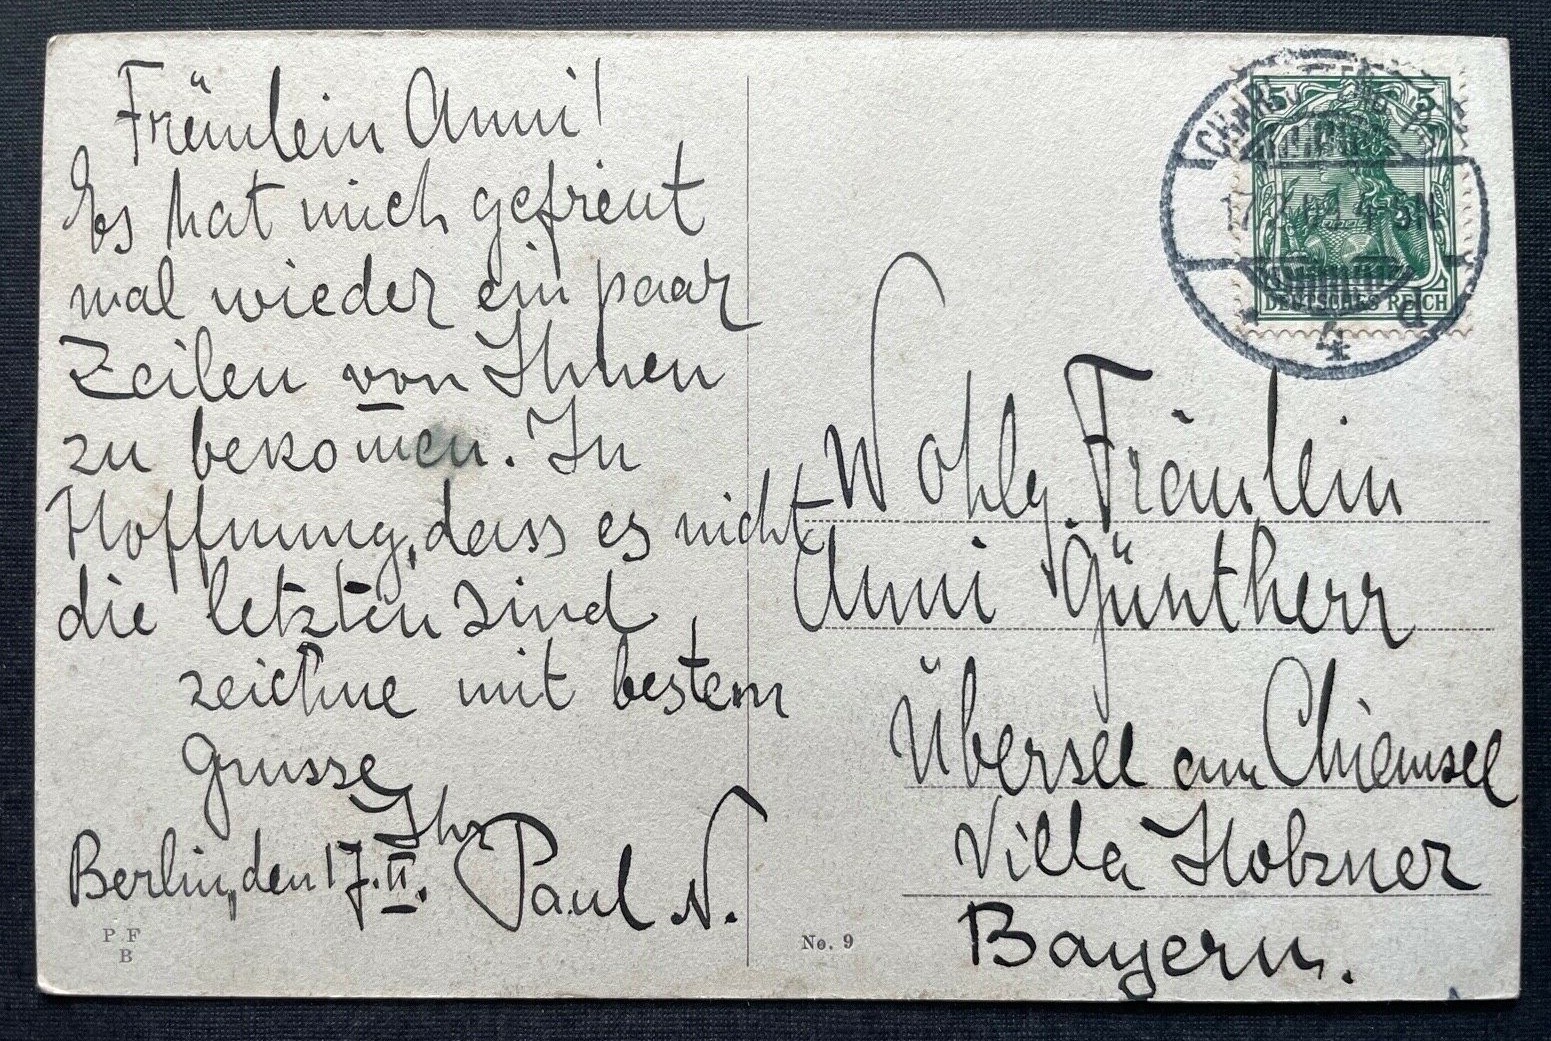 Fräulein Anni!
Es hat mich gefreut
mal wieder ein paar
Zeilen von Ihnen
zu bekom̅en. In
Hoffnung, dass es nicht
die letzten sind,
zeichne mit bestem
Grusse
Ihr
Berlin, den 17.II. Paul N.
P F
B
No. 9
5 5
DEUTSCHES REICH
4 d
Wohlg. Fräulein
Anni Güntherr
Übersee am Chiemsee
Villa Hobzner
Bayern.